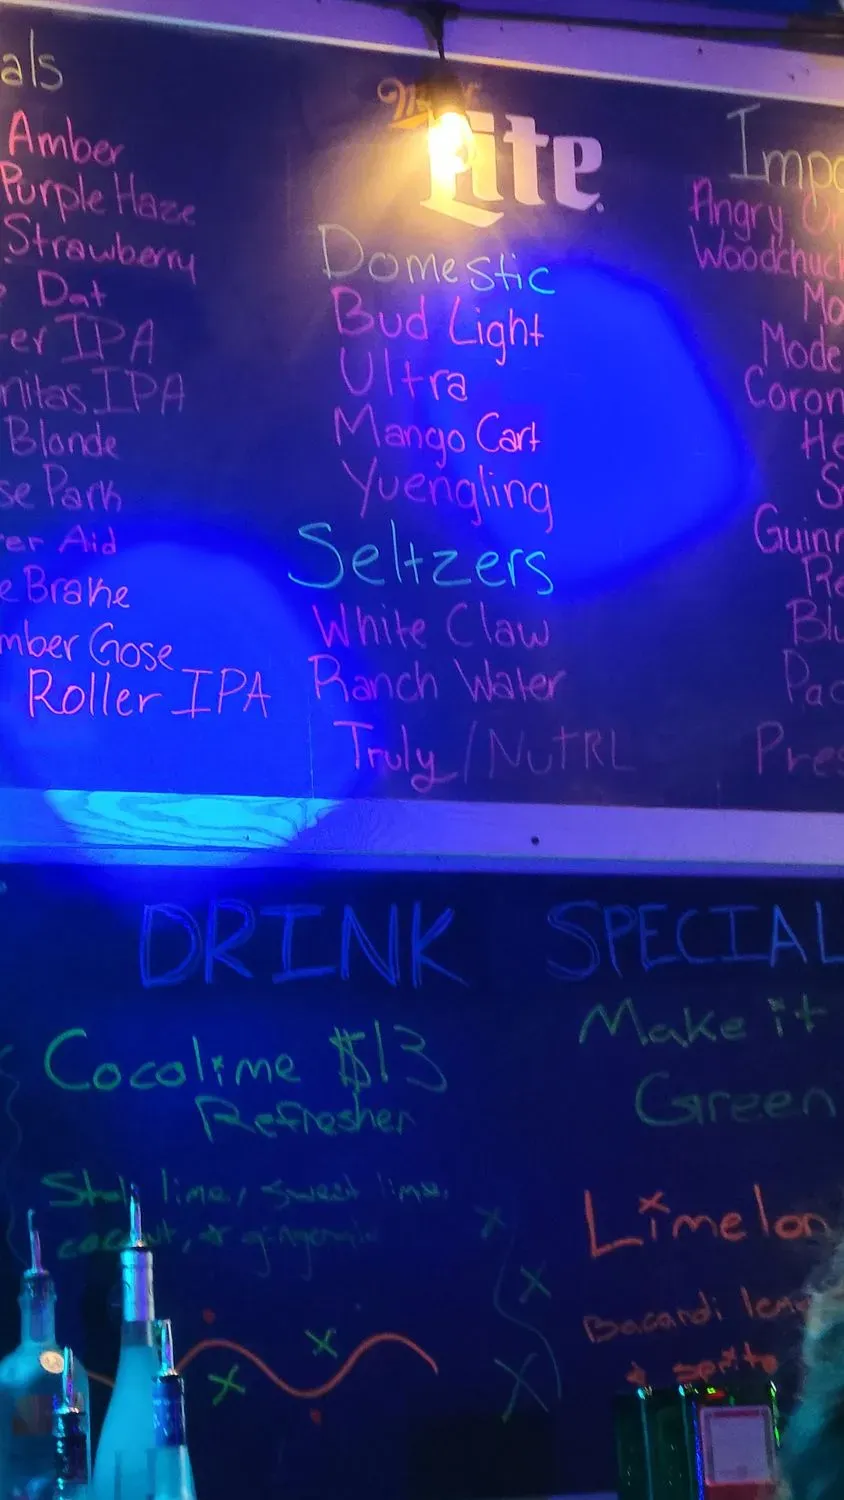 als
Amber
Purple Haze
Strawberry
Dat
er IPA
nitas IPA
Blonde
se Park
er Aid
e Brake
mber Gose
Roller IPA
Miller
Lite
Domestic
Bud Light
Ultra
Mango Cart
Yuengling
Seltzers
White Claw
Ranch Water
Truly / NUTRL
Impo
Angry Or
Woodchuck
Mo
Mode
Coron
He
S
Guinn
Re
Blu
Pac
Pres
DRINK SPECIAL
Cocolime $13
Refresher
lime, sweet lime,
coconut, &
Make it
Green
Limelon
Bacardi
& sprite